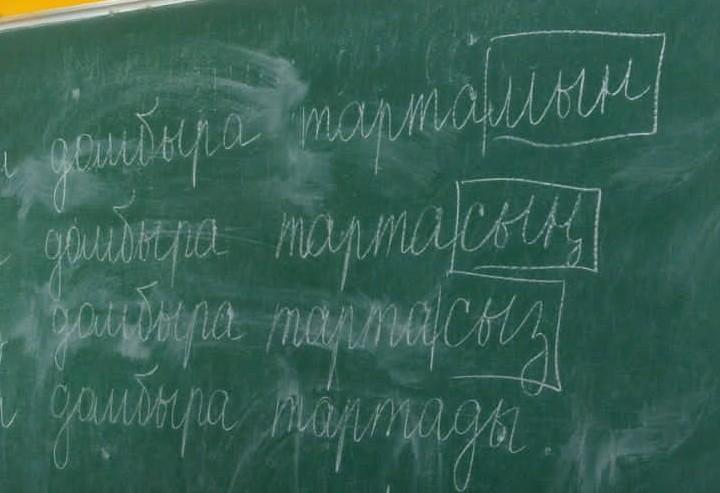 домбыра тартамын
домбыра тартасың
домбыра тартасыз
домбыра тартады.